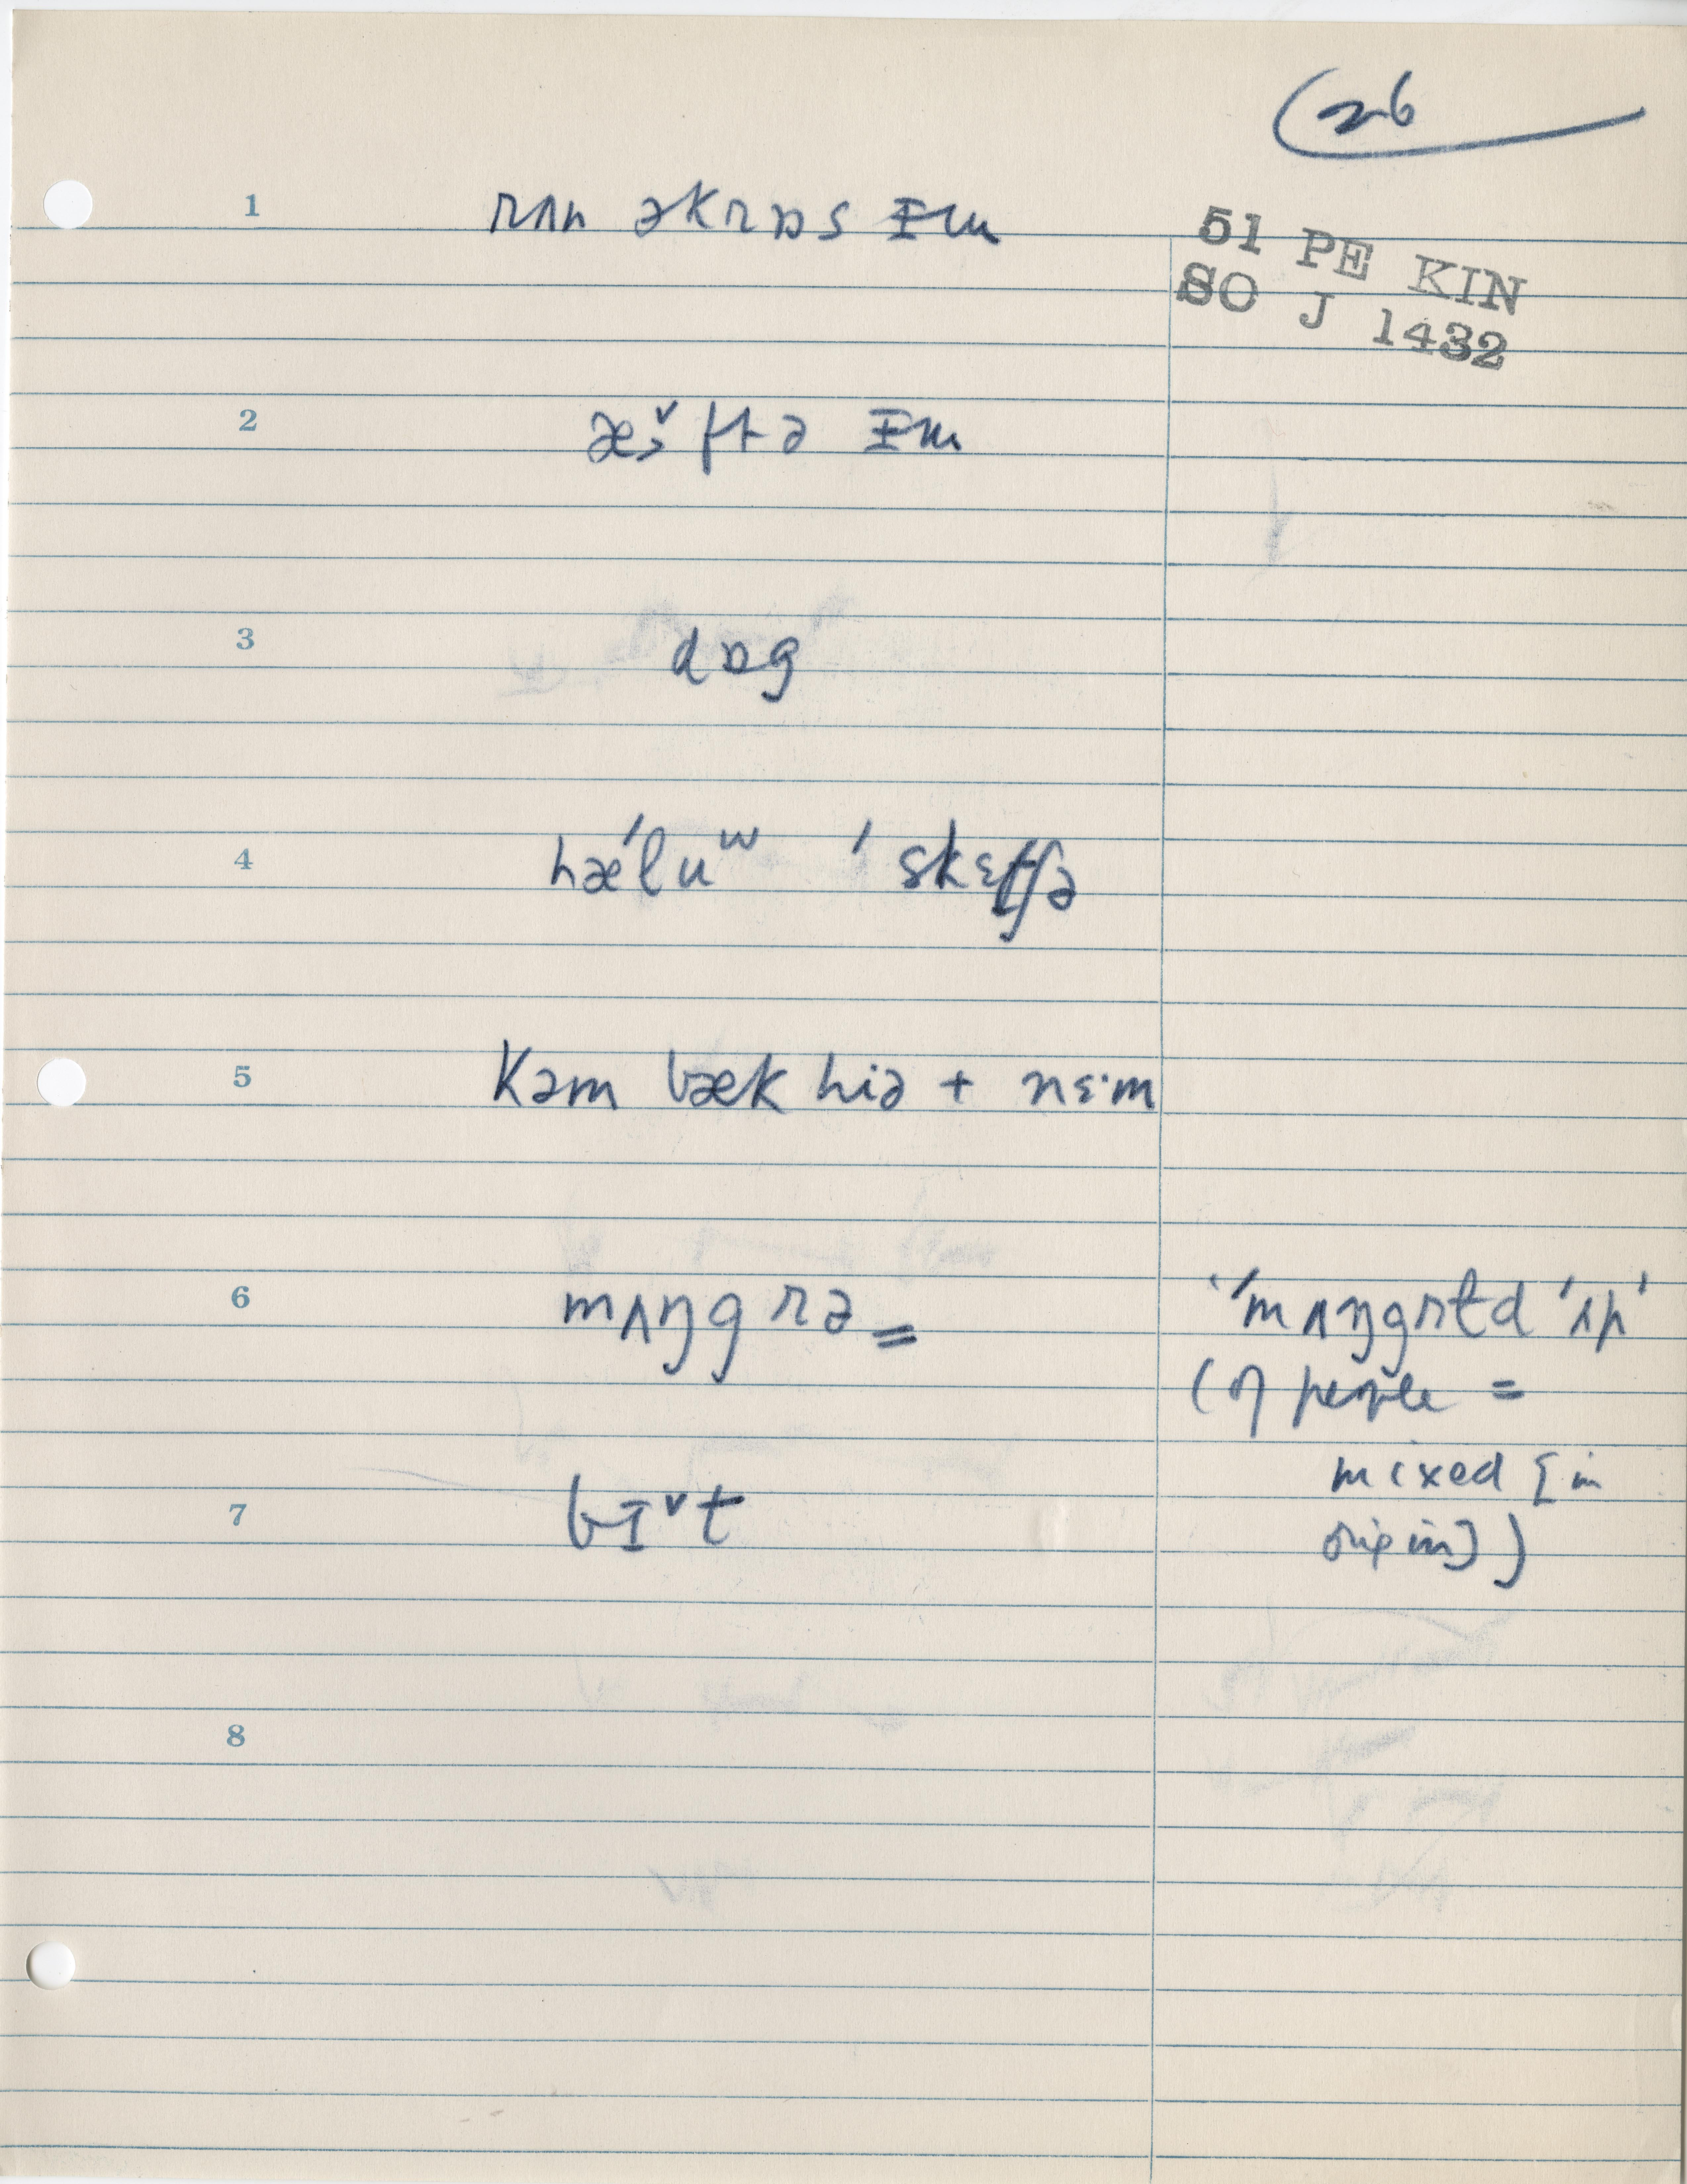 26
51 PE KIN
SO J 1432
1 rʌn əkrɒs ᵻm
2 æ̹ˇftə ᵻm
3 dɒg
4 hǽluʷ ˈskɛtʃə
5 kəm bæk hiə + nɛˑm
6 mʌŋgrə =
"mʌŋgrɫd ˈʌp'
(of people =
mixed [in
origin])
7 bɪˇt
8